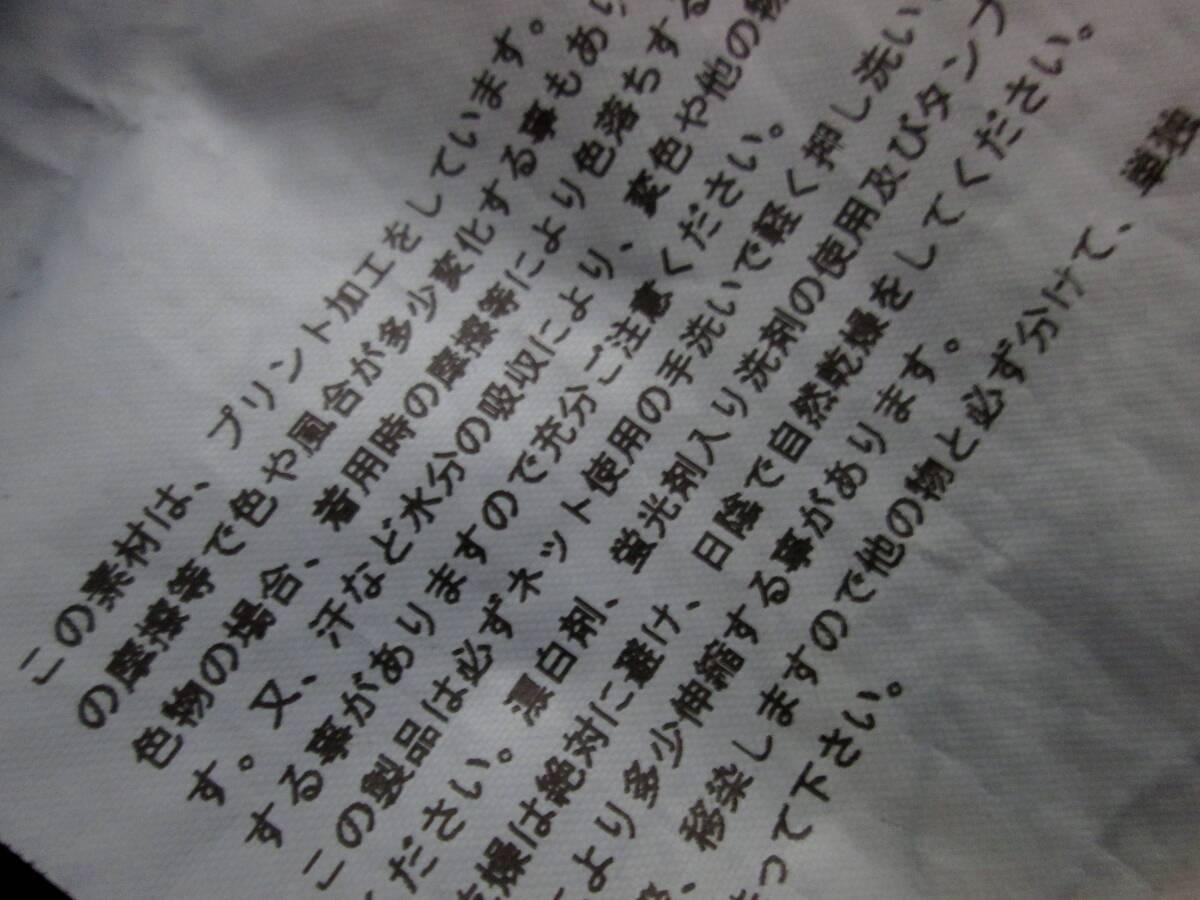 この素材は、プリント加工をしています。
の摩擦等で色や風合が多少変化する事もあり
色物の場合、着用時の摩擦等により色落ちする
す。又、汗など水分の吸収により、変色や他の物
する事がありますので充分ご注意ください。
この製品は必ずネット使用の手洗いで軽く押し洗い
ください。漂白剤、蛍光剤入り洗剤の使用及びタンブ
乾燥は絶対に避け、日陰で自然乾燥をしてください。
により多少伸縮する事があります。
移染しますので他の物と必ず分けて、単独
って下さい。